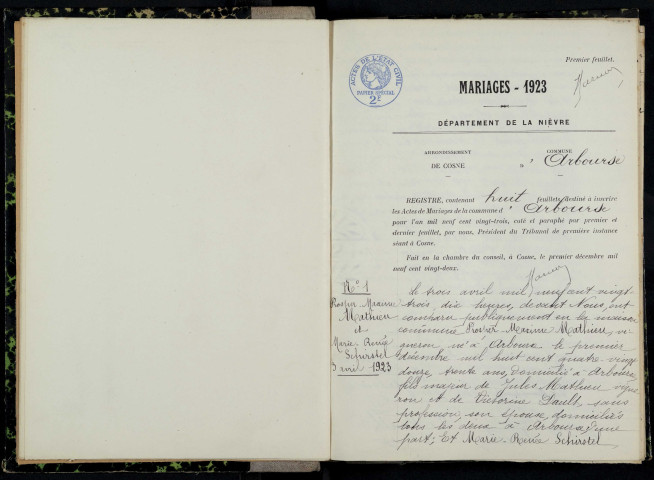 Premier feuillet.
ACTES DE L'ÉTAT CIVIL
PAPIER SPÉCIAL
2F
MARIAGES - 1923
DÉPARTEMENT DE LA NIÈVRE
ARRONDISSEMENT
DE COSNE
COMMUNE
d'Arbourse
REGISTRE, contenant huit feuillets destiné à inscrire
les Actes de Mariages de la commune d'Arbourse
pour l'an mil neuf cent vingt-trois, coté et paraphé par premier et
dernier feuillet, par nous, Président du Tribunal de première instance
séant à Cosne.
Fait en la chambre du conseil, à Cosne, le premier décembre mil
neuf cent vingt-deux.
N° 1
Prosper Maxime
Mathieu
et
Marie-Renée
Schirstel
3 avril 1923
Le trois avril mil neuf cent vingt-
trois, dix heures, devant Nous, ont
comparu publiquement en la maison
commune, Prosper Maxime Mathieu, vi-
gneron né à Arbourse le premier
décembre mil huit cent quatre vingt
douze, trente ans, domicilié à Arbourse,
fils majeur de Jules Mathieu vigne-
ron et de Victorine Sault, sans
profession, son épouse, domiciliés
tous les deux à Arbourse d'une
part; Et Marie-Renée Schirstel